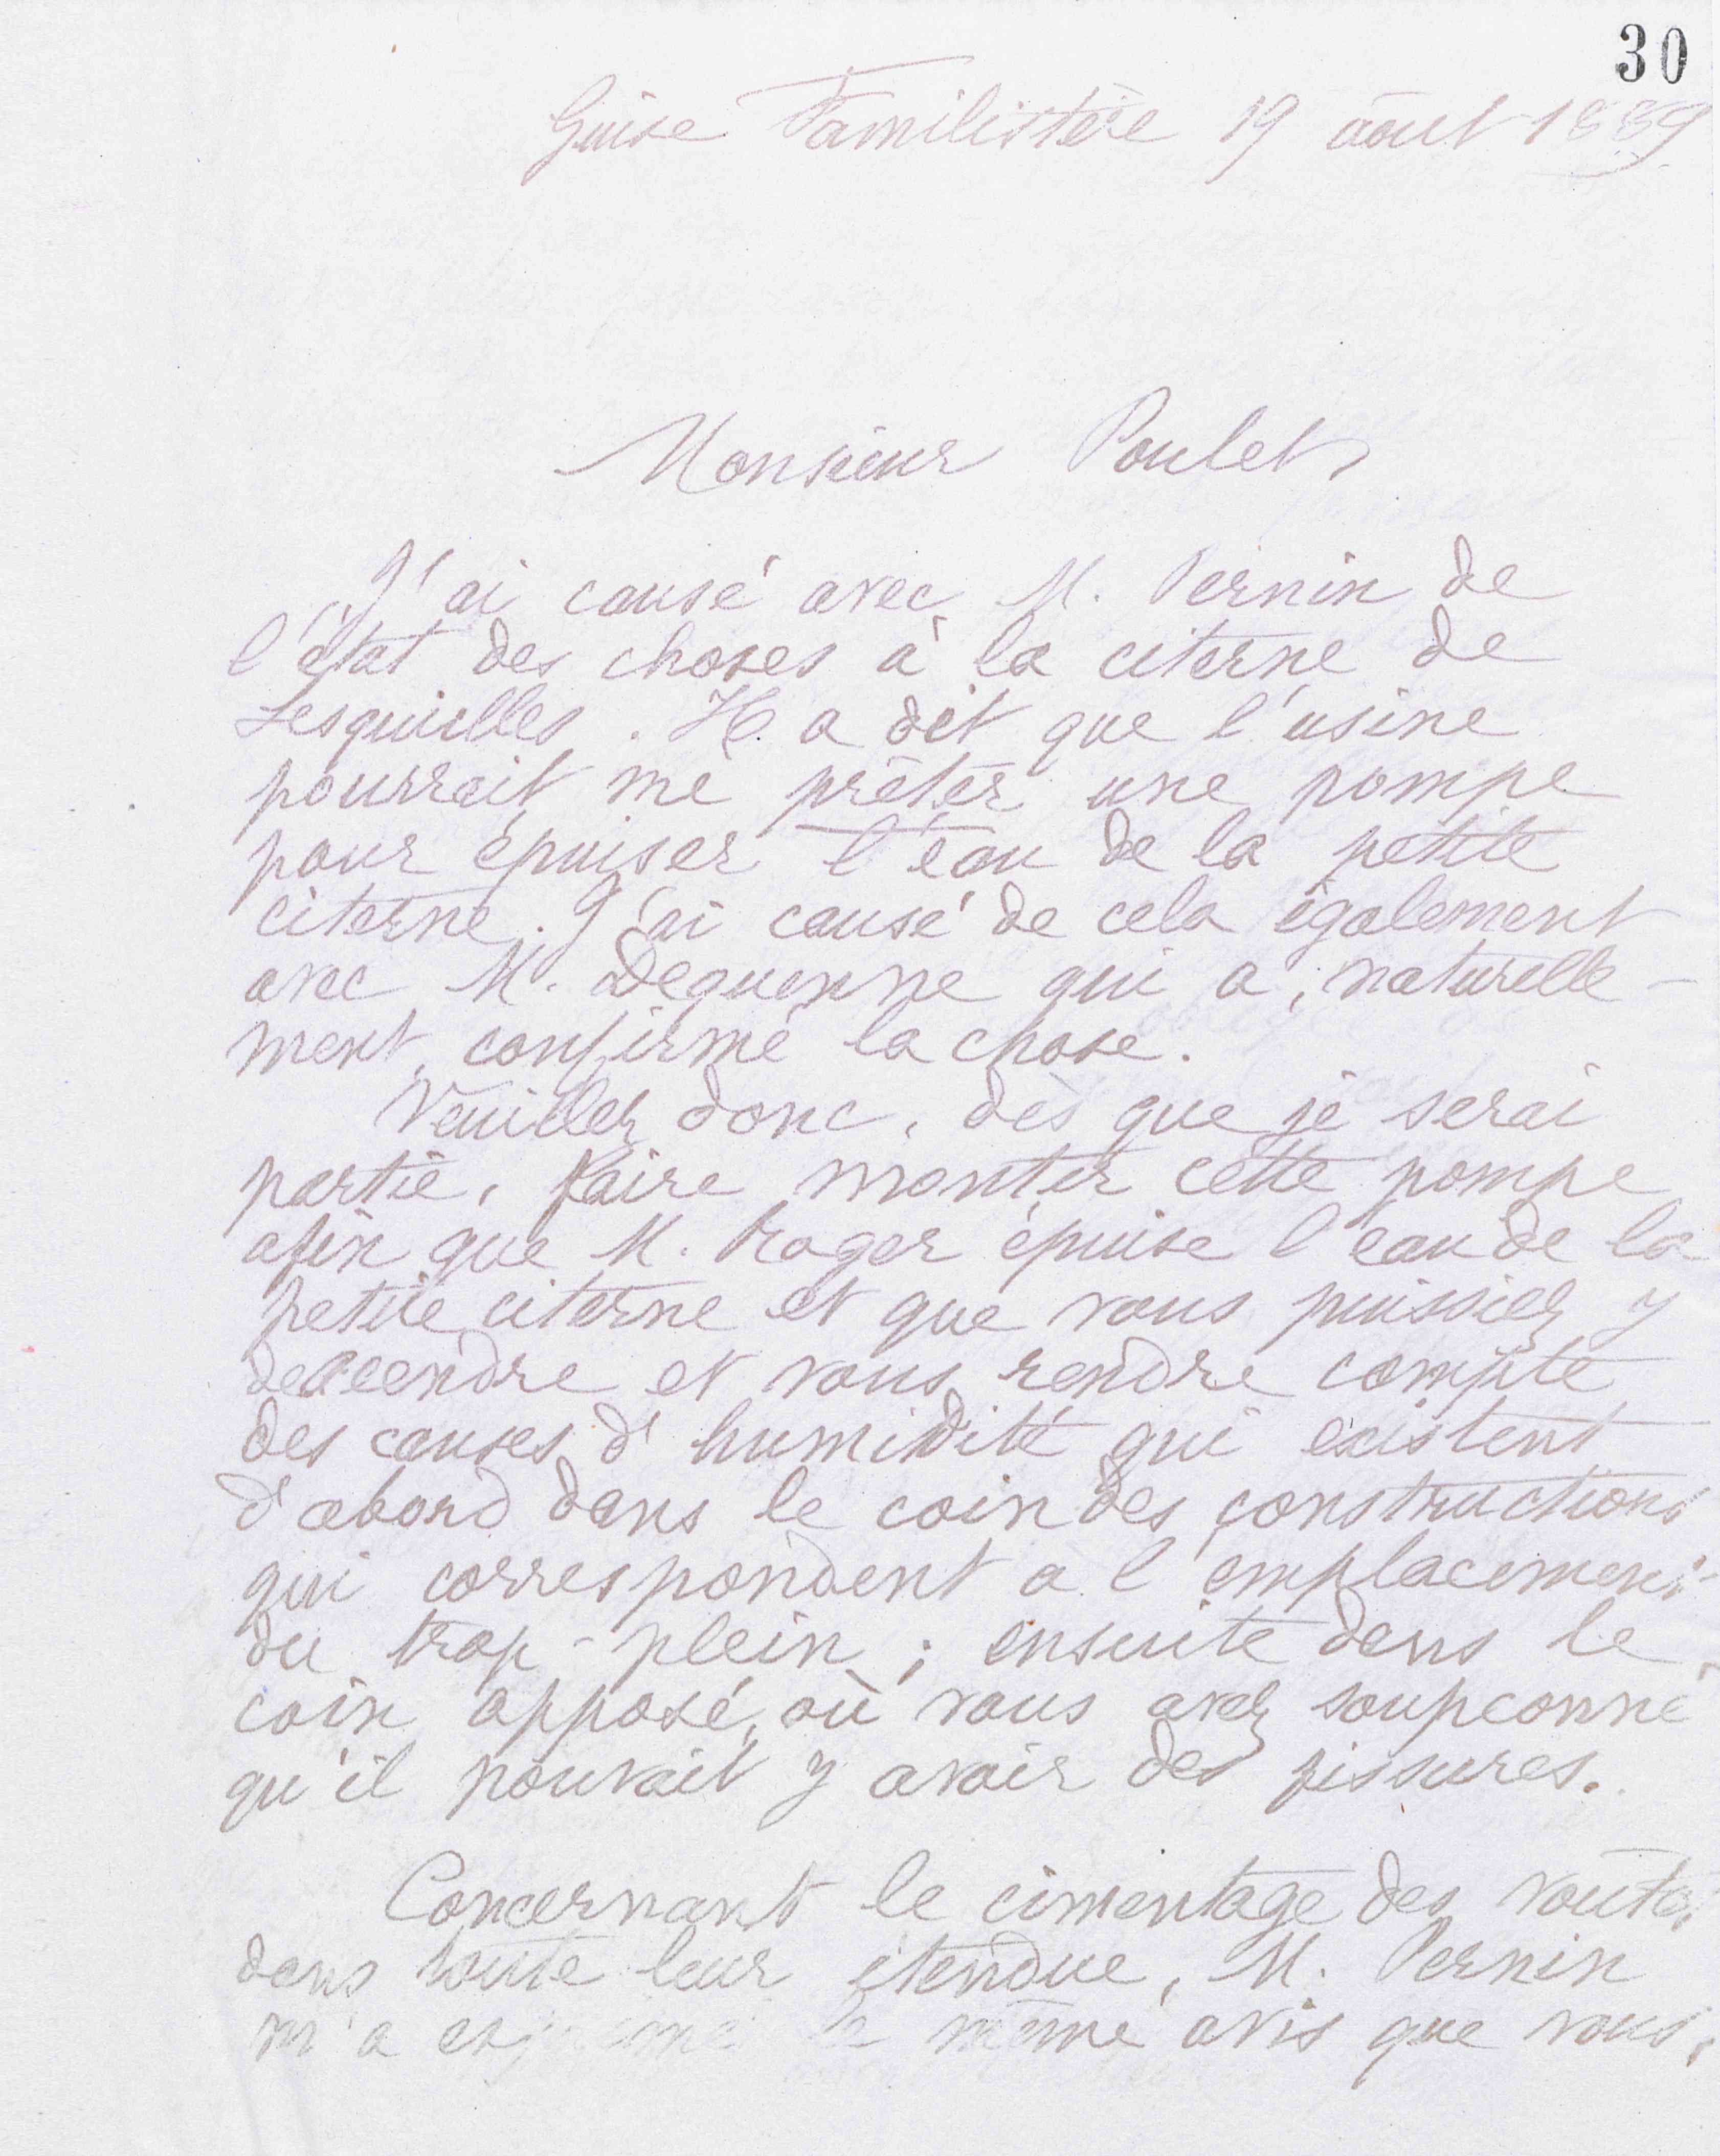 30
Guise Familistère 19 août 1889
Monsieur Poulet,
J'ai causé avec M. Pernin de
l'état des choses à la citerne de
Lesquielles. Il a dit que l'usine
pourrait me prêter une pompe
pour épuiser l'eau de la petite
citerne. J'ai causé de cela également
avec M. Dequenne qui a, naturelle-
ment, confirmé la chose.
Veuillez donc, dès que je serai
partie, faire monter cette pompe
afin que M. Roger épuise l'eau de la
petite citerne et que vous puissiez y
descendre et vous rendre compte
des causes d'humidité qui existent
d'abord dans le coin des constructions
qui correspondent a l'emplacement
du trop-plein; ensuite dans le
coin opposé, où vous avez soupconné
qu'il pouvait y avoir des fissures.
Concernant le cimentage des voûtes
dans toute leur étendue, M. Pernin
m'a exprimé le même avis que vous,